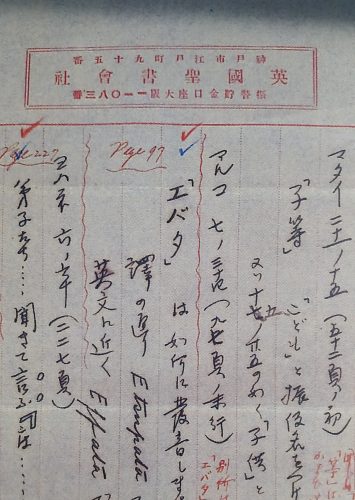 神戸市江戸町九十五番
英國聖書會社
振替貯金口座大阪一一〇八三番
マタイ 二十一ノ十五（五十二頁ノ初）
「子等」「こども」と振仮名をつけ
又ハ十七ノ廿五の如く「子供」と
マルコ 七ノ三十四（九七頁ノ末行）
Page 97
「エバタ」は如何に發音しま
譯の通り Etsupata
英文に近く Effata
ヨハネ 六ノ六十（二二七頁）
Page 227
弟子たち……聞きて言ふ「こは……